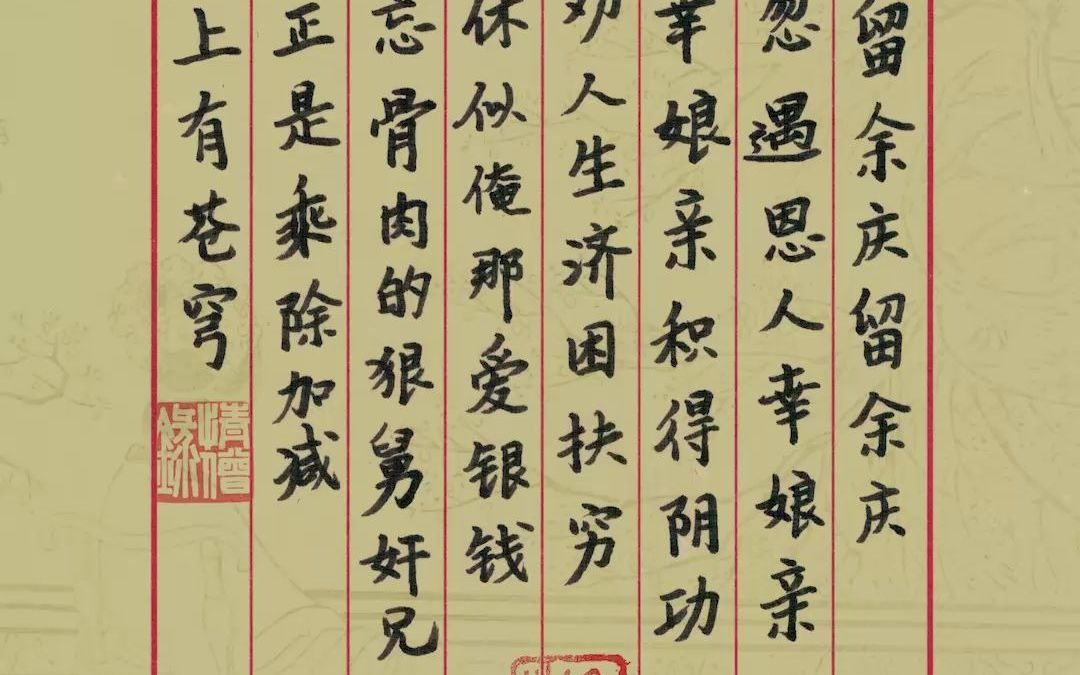 留余庆留余庆
忽遇恩人幸娘亲
幸娘亲积得阴功
劝人生济困扶穷
休似俺那爱银钱
忘骨肉的狠舅奸兄
正是乘除加减
上有苍穹
情僧錄